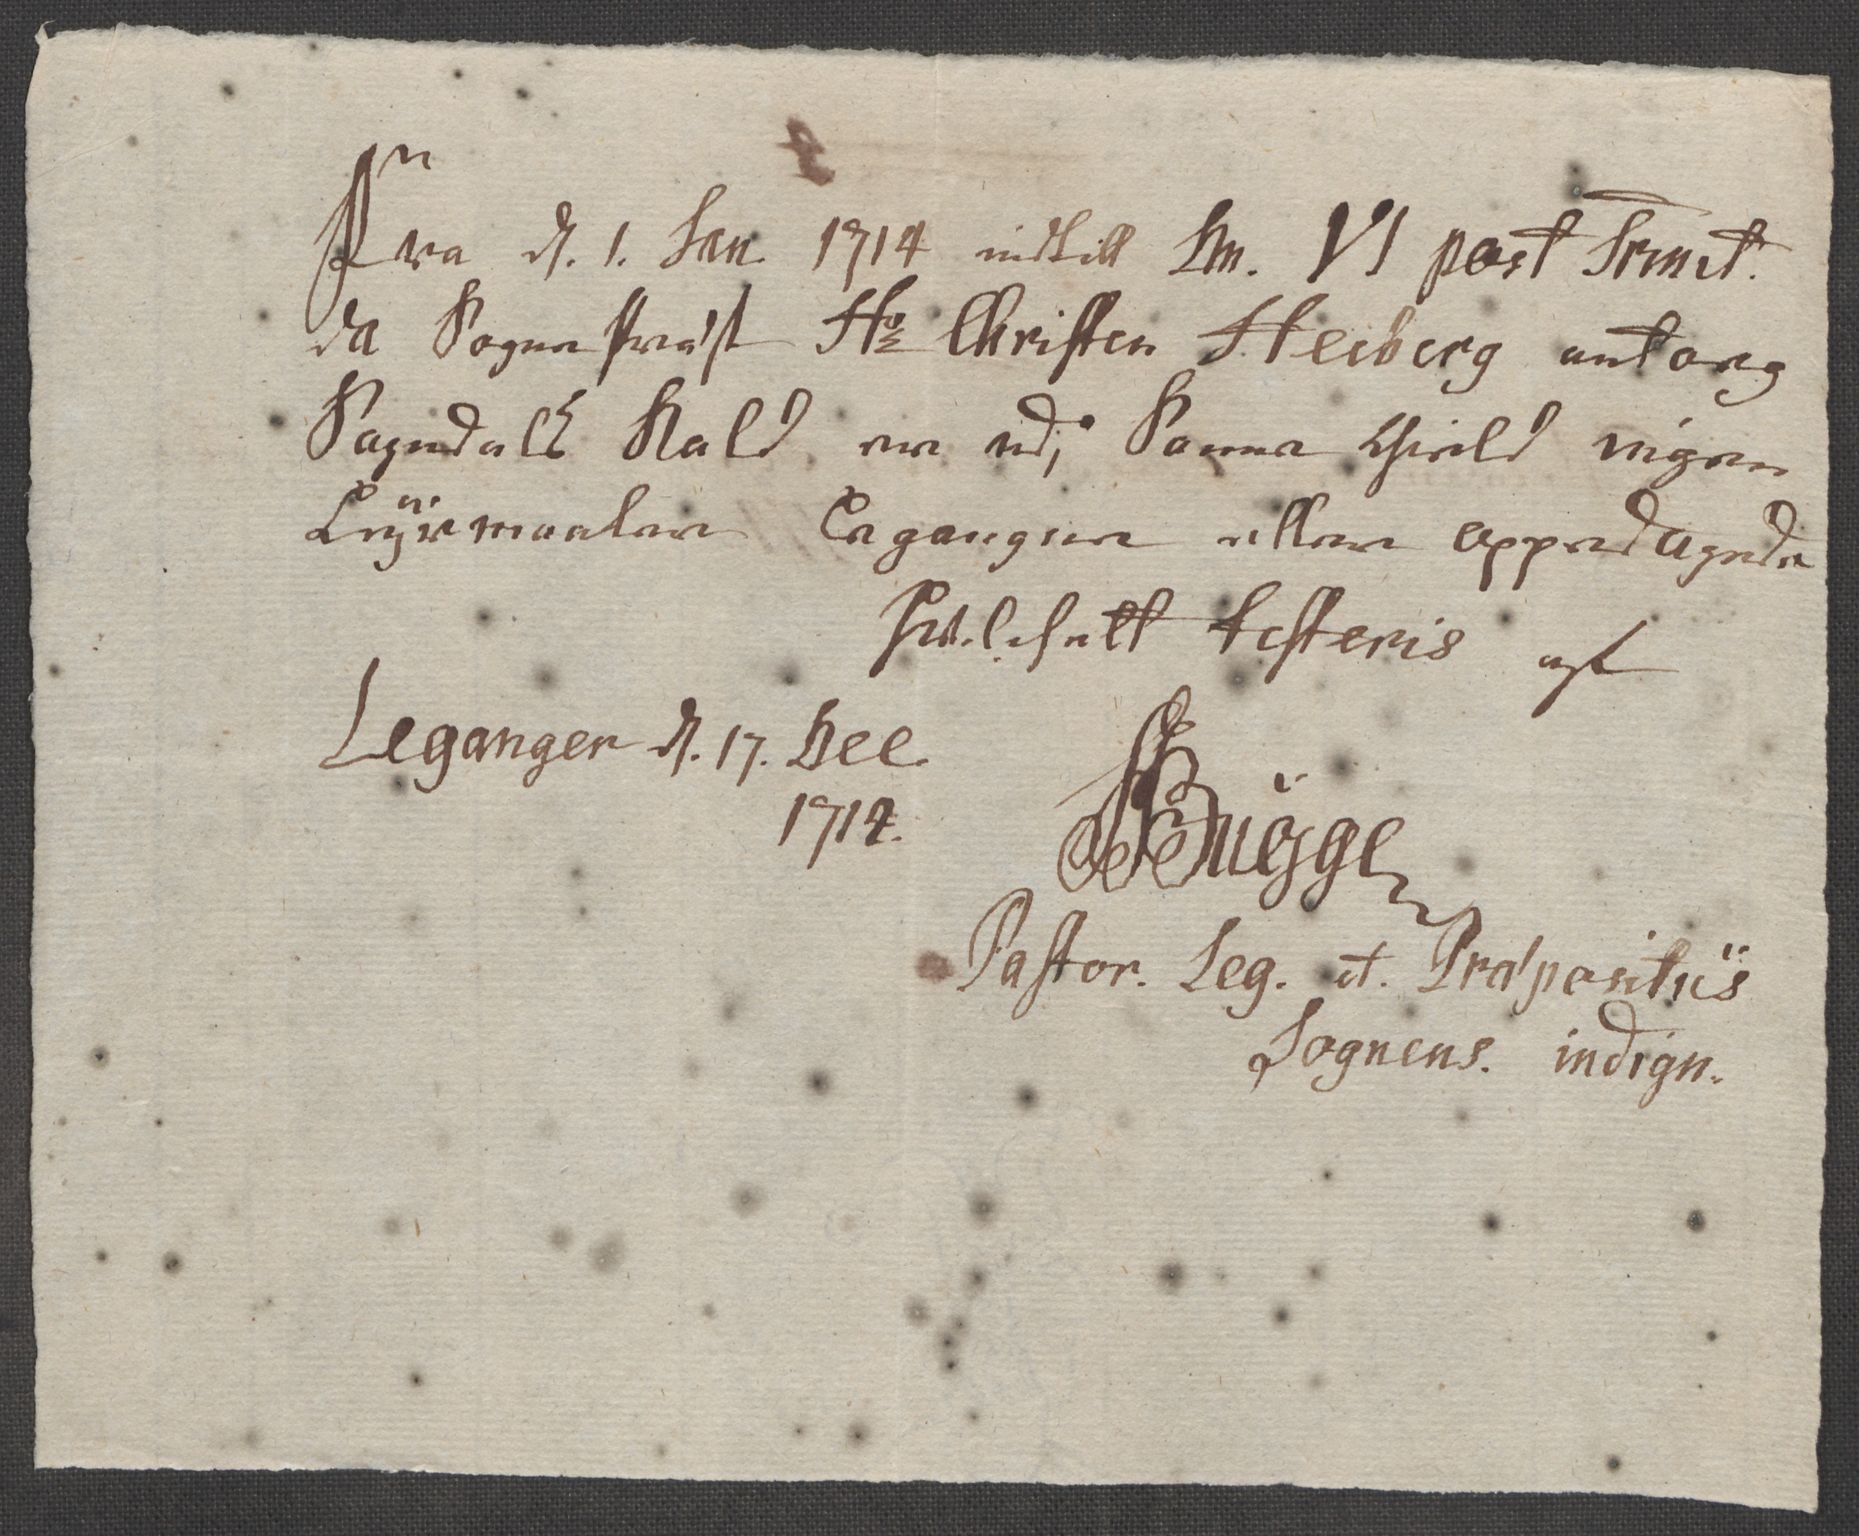 Fra d. 1. Jan. 1714 indtill Dn. VI post Trinit.
da Sogne Præst Hr Christen Heiberg antog
Sogndals Kald, er udj Samme gield ingen
Leyermaaler begangne eller oppedagede
testeris
Leganger d. 17. Dec.
1714.
Bugge
Pastor. Leg. et. Præpositus
Sognens. indign.